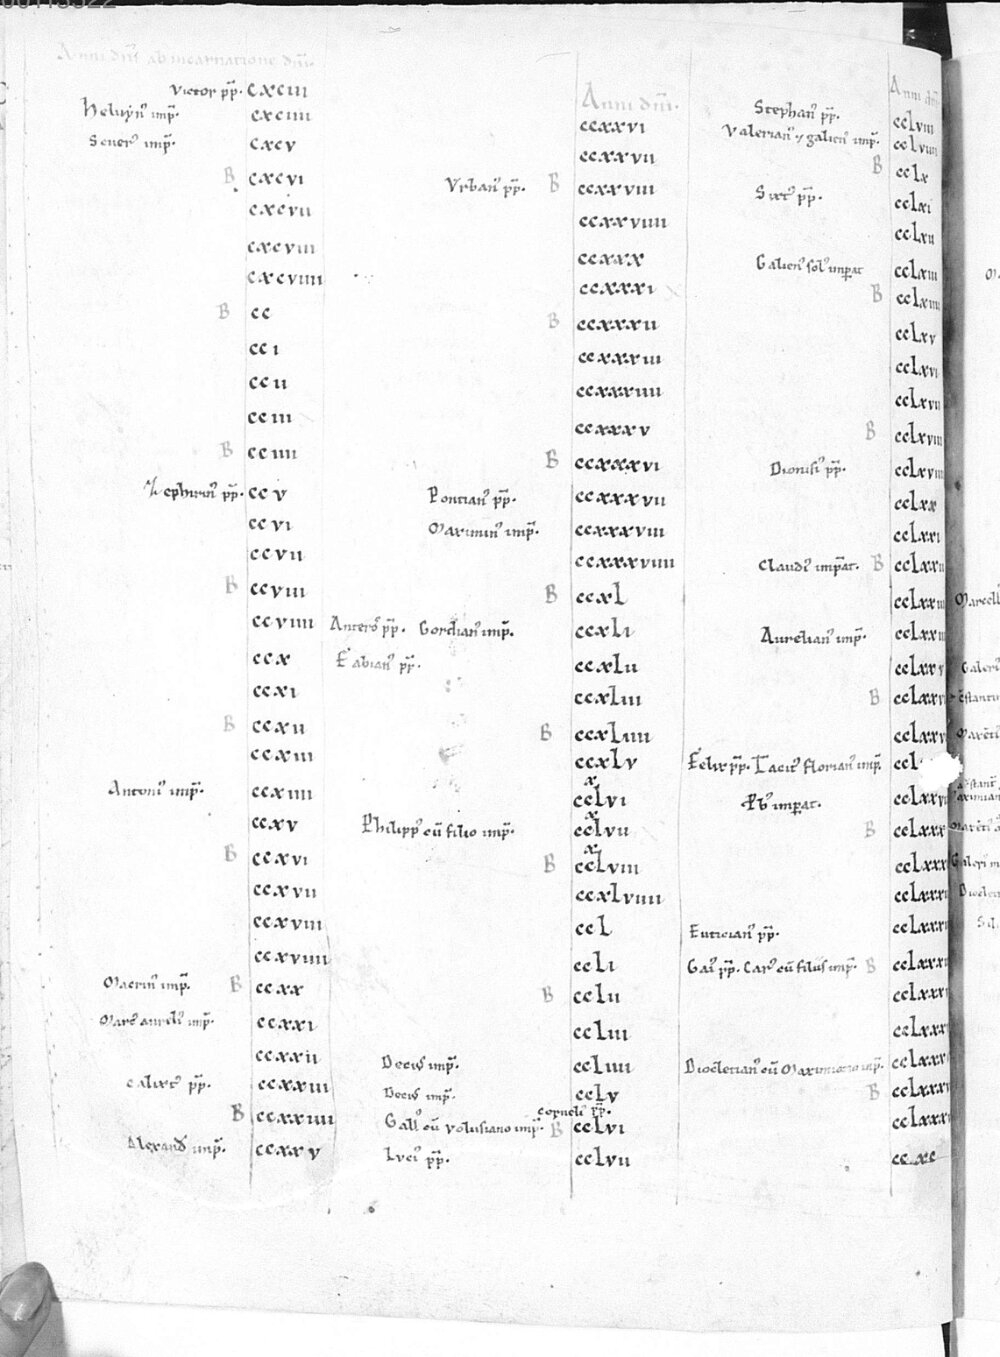 Anni dñi ab incarnatione dñi.
Victor pp̃. cxciii
Heluyn᾽ imp̃. cxciiii
Seuer᾽ imp̃. cxcv
B cxcvi
cxcvii
cxcviii
cxcviiii
B cc
cci
ccii
cciii
B cciiii
Zephirin᾽ pp̃. ccv
ccvi
ccvii
B ccviii
ccviiii
ccx
ccxi
B ccxii
ccxiii
Antoni᾽ imp̃. ccxiiii
ccxv
B ccxvi
ccxvii
ccxviii
ccxviiii
Macrin᾽ imp̃. B ccxx
Marc᾽ aureli᾽ imp̃. ccxxi
ccxxii
calixt᾽ pp̃. ccxxiii
B ccxxiiii
Alexand᾽ imp̃. ccxxv
Anni dñi.
ccxxvi
ccxxvii
Vrban᾽ pp̃. B ccxxviii
ccxxviiii
ccxxx
ccxxxi
B ccxxxii
ccxxxiii
ccxxxiiii
ccxxxv
B ccxxxvi
Pontian᾽ pp̃. ccxxxvii
Maximin᾽ imp̃. ccxxxviii
ccxxxviiii
B ccxl
Anteros pp̃. Gordian᾽ imp̃. ccxli
Fabian᾽ pp̃. ccxlii
ccxliii
B ccxliiii
ccxlv
ccxlvi
Philipp᾽ cũ filio imp̃. ccxlvii
B ccxlviii
ccxlviiii
ccl
ccli
B cclii
ccliii
Deci᾽ imp̃. ccliiii
Deci᾽ imp̃. cclv
corneli᾽ pp̃.
Gall᾽ cũ volusiano imp̃. B cclvi
Luci᾽ pp̃. cclvii
Anni dñi
Stephan᾽ pp̃. cclviii
Valerian᾽ ⁊ galien᾽ imp̃. cclviiii
B cclx
Sixt᾽ pp̃. cclxi
cclxii
Galien᾽ sol᾽ imperat cclxiii
B cclxiiii
cclxv
cclxvi
cclxvii
B cclxviii
Dionisi᾽ pp̃. cclxviiii
cclxx
cclxxi
Claudi᾽ imperat. B cclxxii
cclxxiii
Aurelian᾽ imp̃. cclxxiiii
cclxxv
B cclxxvi
cclxxvii
Felix pp̃. Tacit᾽ florian᾽ imp̃. ccl
Pb᾽ imperat. cclxxvi
B cclxxx
cclxxxi
cclxxxi
Eutician᾽ pp̃. cclxxxi
Gai᾽ pp̃. Car᾽ cũ filiis imp̃. B cclxxxi
cclxxx
cclxxx
Diocletian᾽ cũ Maximiano imp̃. cclxxx
B cclxxx
cclxxx
ccxc